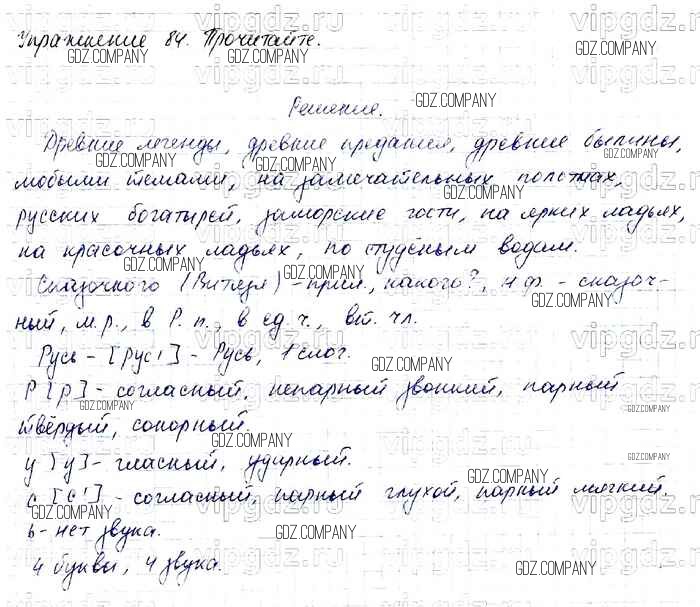 Упражнение 84. Прочитайте.
Решение.
Древние легенды, древние предания, древние былины,
любыми темами, на замечательных полотнах,
русских богатырей, заморские гости, на ярких ладьях,
на красочных ладьях, по студёным водам.
Сказочного (Витязя) - прил., какого?, н.ф. - сказоч-
ный, м.р., в Р.п., в ед.ч., вт. чл.
Русь - [рус'] - Русь, 1 слог.
Р [р] - согласный, непарный звонкий, парный
твёрдый, сонорный.
у [у] - гласный, ударный.
с [с'] - согласный, парный глухой, парный мягкий.
ь - нет звука.
4 буквы, 4 звука.
GDZ.COMPANY
vipgdz.ru